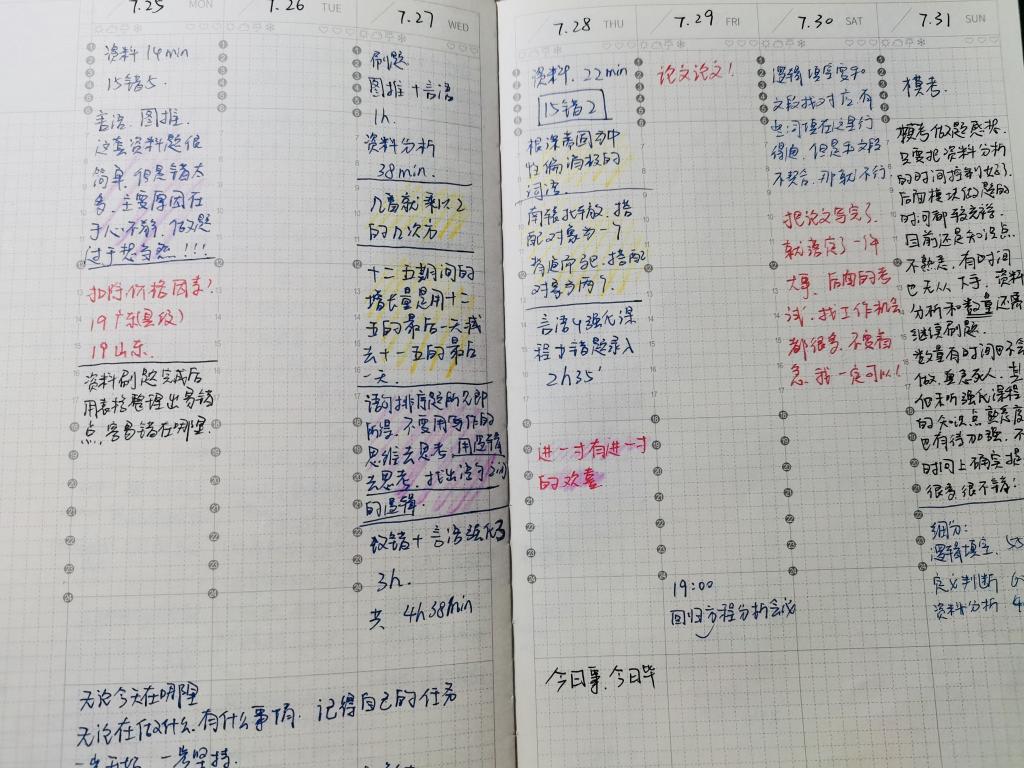 7.25 MON
资料 14min
15错5.
言语. 图推.
这套资料题很
简单. 但是错太
多. 主要原因在
于心不静. 做题
过于想当然!!!
扣除价格因素!
19广东(县级)
19山东.
资料刷题完成后
用表格整理出易错
点, 容易错在哪里.
7.26 TUE
7.27 WED
刷题
图推+言语
1h.
资料分析
38min.
几番就乘以2
的几次方
十二五期间的
增长量是用十二
五的最后一天减
去十一五的最后
一天.
语句排序题所见即
所得. 不要用写作的
思维去思考. 用逻辑
去思考. 找出语句之间
的逻辑.
改错+言语强化3
3h.
共 4h38min
无论今天在哪里
无论在做什么. 有什么事情. 记得自己的任务
一步坚持.
7.28 THU
资料. 22min
15错2
根深蒂固为中
性偏消极的
词语.
南辕北辙. 搭
配对象为一个
背道而驰. 搭配
对象为两个.
言语4强化课
程+错题录入
2h35'
进一寸有进一寸
的欢喜
今日事. 今日毕
7.29 FRI
论文论文!
19:00
回归方程分析会议
7.30 SAT
逻辑填空要和
文段找对应. 有
些词填在这里行
得通. 但是和文段
不契合. 那就不行.
把论文写完了.
就落定了一件
大事. 后面的考
试. 找工作机会
都很多. 不要着
急. 我一定可以!
7.31 SUN
模考.
模考做题感想.
只要把资料分析
的时间控制好了.
后面模块做题的
时间都较充裕.
目前还是知识点
不熟悉. 有时间
也无从下手. 资料
分析和数量还需
继续刷题.
数量有时间时不会
做. 要急死人.
的知识点熟悉度
也有待加强. 不
时间上确实提
很多. 很不错!
细分:
逻辑填空.
定义判断
资料分析